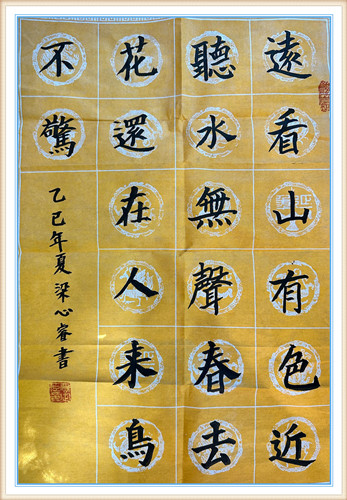 遠看山有色近
聽水無聲春去
花還在人來鳥
不驚
乙巳年夏梁心睿書